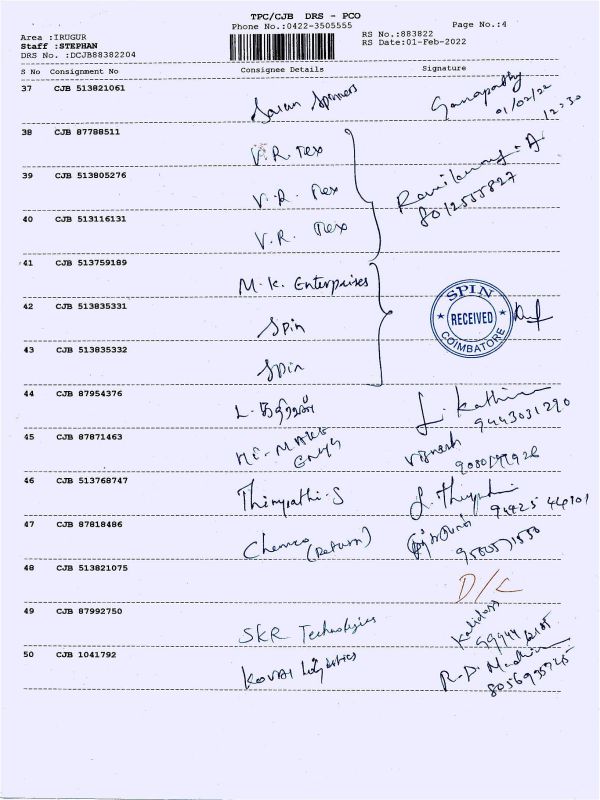 TPC/CJB DRS - PCO
Phone No.:0422-3505555
Page No.:4
Area :IRUGUR
Staff :STEPHAN
DRS No. :DCJB88382204
RS No.:883822
RS Date:01-Feb-2022
S No Consignment No Consignee Details Signature
37 CJB 513821061 Saran Spinners Ganapathy
01/02/22
12:30
38 CJB 87788511 V.R Tex
39 CJB 513805276 V.R. Tex
8012555827
40 CJB 513116131 V.R. Tex
41 CJB 513759189 M.K. Enterprises
42 CJB 513835331 Spin
SPIN
RECEIVED
COIMBATORE
43 CJB 513835332 Spin
44 CJB 87954376 L.
9443031290
45 CJB 87871463 Vignesh
46 CJB 513768747 Thirupathi-S
47 CJB 87818486 Chemco (Return)
48 CJB 513821075 D/C
49 CJB 87992750 SKR Technologies Kalidoss
50 CJB 1041792 KOVAI Logistics